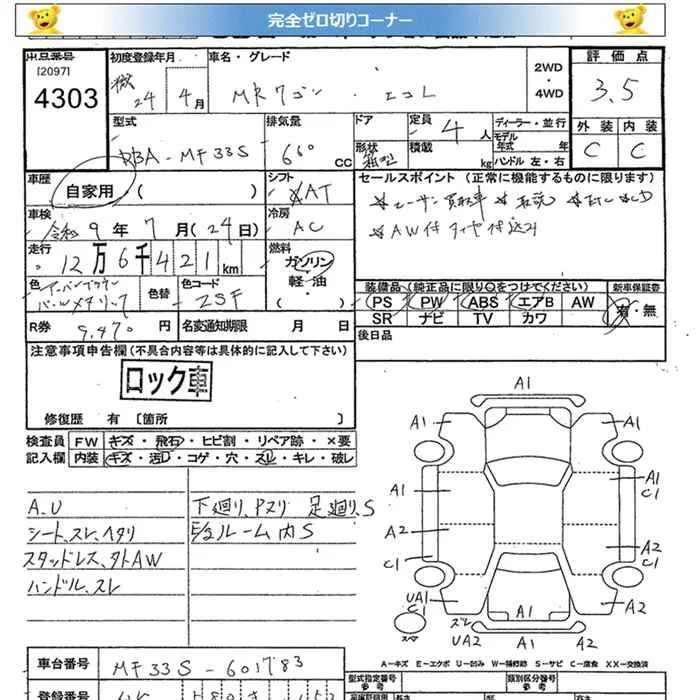 完全ゼロ切りコーナー
出品番号
[2097]
4303
初度登録年月
24年 4月
車名・グレード
MRワゴン・エコL
2WD
・4WD
評価点
3.5
外装 内装
C C
型式
DBA-MF33S
排気量
660 CC
ドア
形状
定員
4人
積載 kg
ディーラー・並行
モデル年式 年
ハンドル 左・右
車歴
自家用 ( )
シフト
AT
車検
令和 9年 7月(24日)
冷房
AC
走行
12万6千421km
燃料
ガソリン
軽・油
( )
色
パールメタリック
色替
色コード
ZSF
R券
9,470円
名変通知期限 月 日
セールスポイント (正常に機能するものに限ります)
装備品(純正品に限り○をつけてください)
新車保証書
PS PW ABS エアB AW
SR ナビ TV カワ
有・無
後日品
注意事項申告欄(不具合内容等は具体的に記入して下さい)
ロック車
修復歴 有 [箇所 ]
検査員記入欄
FW キズ・飛石・ヒビ割・リペア跡・×要
内装 キズ・汚レ・コゲ・穴・スレ・キレ・破レ
A.U
シート、スレ、ヘタリ
スタッドレス、タトAW
ハンドル、スレ
下廻り、Pスリ 足廻り、S
E/gルーム内S
A1
A1 A1
A1 A1
C1
A2 A2
C1
UA1 A1 A2
C1
スレ
UA2
スペア
A-キズ E-エクボ U-凹み W-補修跡 S-サビ C-腐食 XX-交換済
車台番号
MF33S-601783
登録番号
型式指定番号
参考
類別区分番号
参考